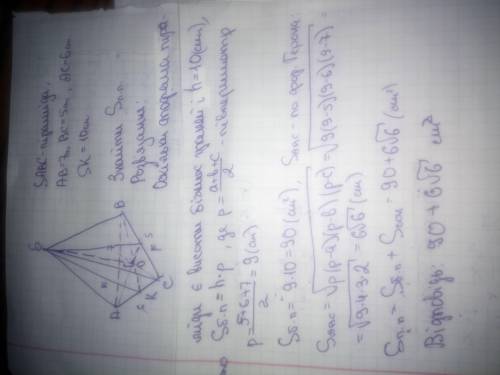 SABC-піраміда,
AB=7, BC=5см, AC=6см
SK = 10см
Знайти Sп.п.
Розв'язання:
S
A
B
C
K
O
міди є висоти бічних граней і h=10(см),
Sб.п = h·p, де p = a+b+c/2 - півпериметр
p = 5+6+7/2 = 9 (см)
Sб.п = 9·10 = 90 (см²), Sосн - по фор. Герона:
Sосн = √p(p-a)(p-b)(p-c) = √9(9-5)(9-6)(9-7) =
= √9·4·3·2 = 6√6 (см)
Sп.п = Sб.п + Sосн = 90+6√6 (см²)
Відповідь: 90 + 6√6 см²